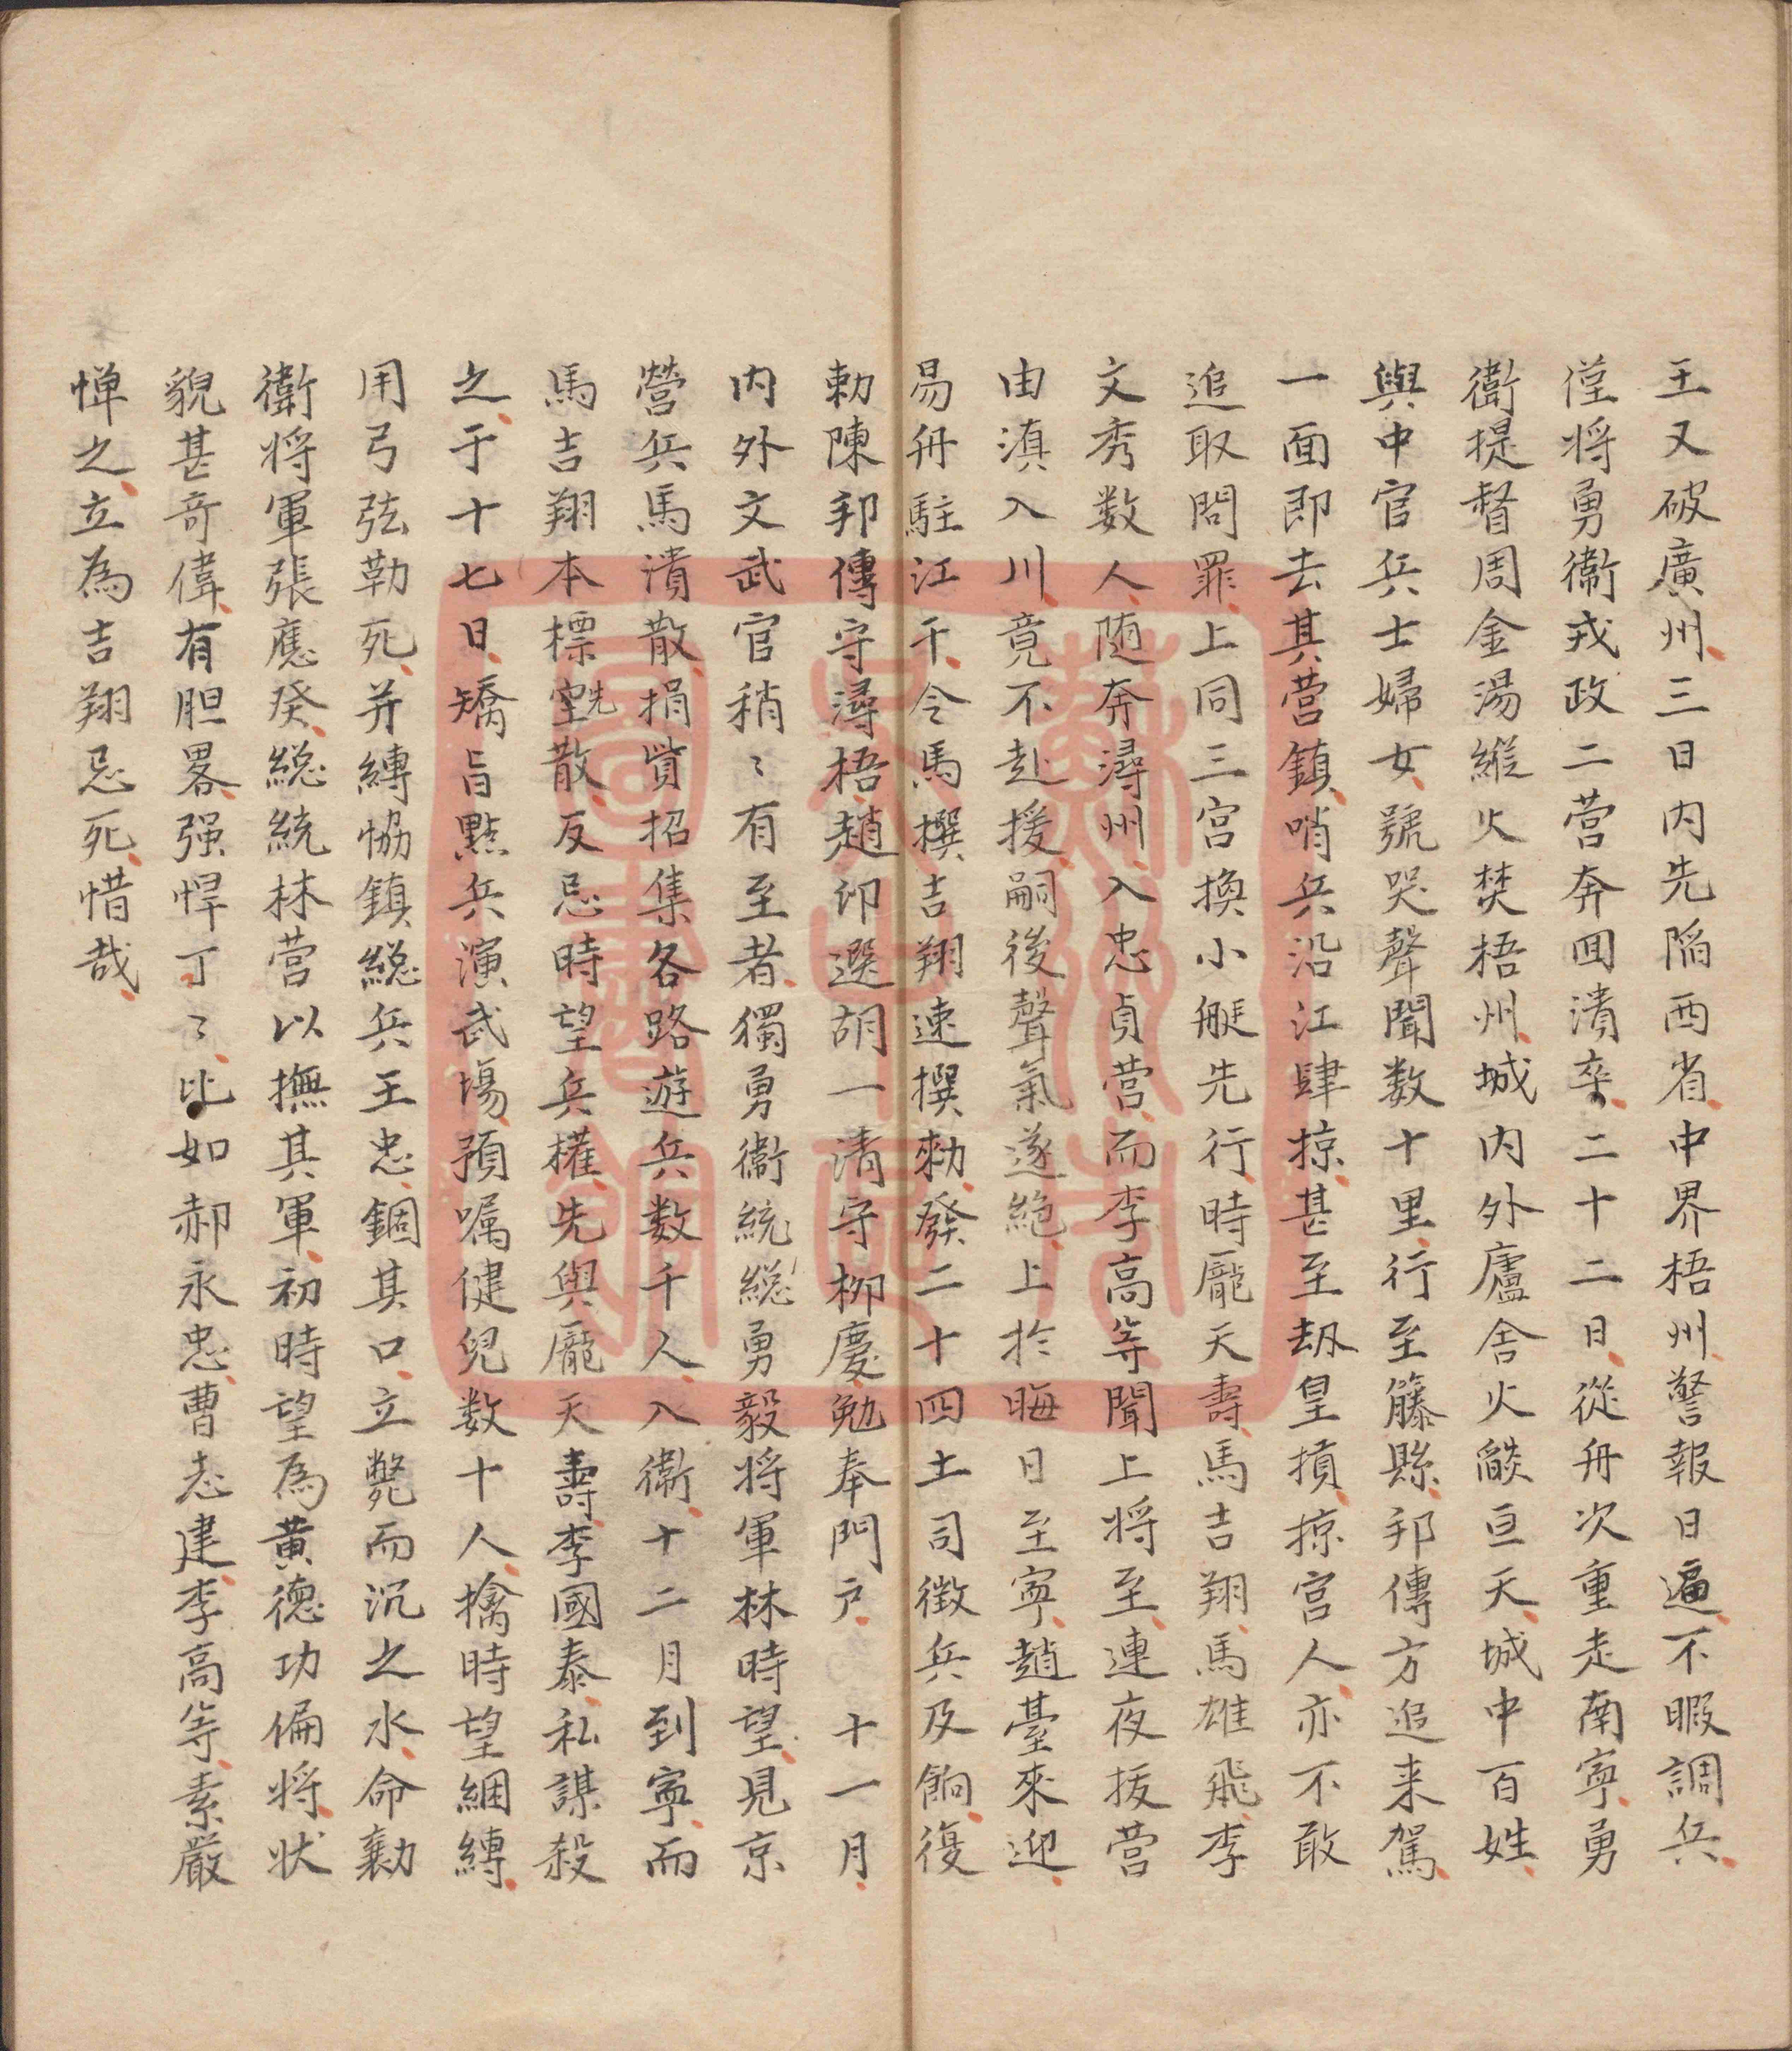 王又破廣州三日内先陷西省中界梧州警報日逼不暇調兵
僅将勇衞戎政二营奔回潰卒二十二日從舟次重走南寧勇
衞提督周金湯縱火焚梧州城内外廬舍火燄亘天城中百姓
與中官兵士婦女號哭聲聞数十里行至籐縣邦傳方追来駕
一面即去其营鎮哨兵沿江肆掠甚至刼皇摃掠宫人亦不敢
追取問罪上同三宫換小艇先行時龎天壽馬吉翔馬雄飛李
文秀数人随奔潯州入忠貞营而李高等聞上将至連夜拔营
由滇入川竟不赴援嗣後聲氣遂絶上於晦日至寧趙臺來迎
易舟駐江干令馬撰吉翔速撰勑發二十四土司徵兵及餉復
勅陳邦傳守潯梧趙印選胡一清守栁慶勉奉門户 十一月
内外文武官稍〻有至者獨勇衞統総勇毅将軍林時望見京
營兵馬潰散捐貲招集各路遊兵数千人入衞十二月到寧而
馬吉翔本標先空散反忌時望兵權先與龎天壽李國泰私謀殺
之于十七日矯旨點兵演武塲預嘱健兒数十人擒時望綑縛
用弓弦勒死并縛恊鎮総兵王忠錮其口立斃而沉之水命勷
衞将軍張應癸総統林营以撫其軍初時望為黄德功偏将状
貌甚竒偉有胆畧强悍丁〻比如郝永忠曹志建李高等素嚴
惮之立為吉翔忌死惜哉